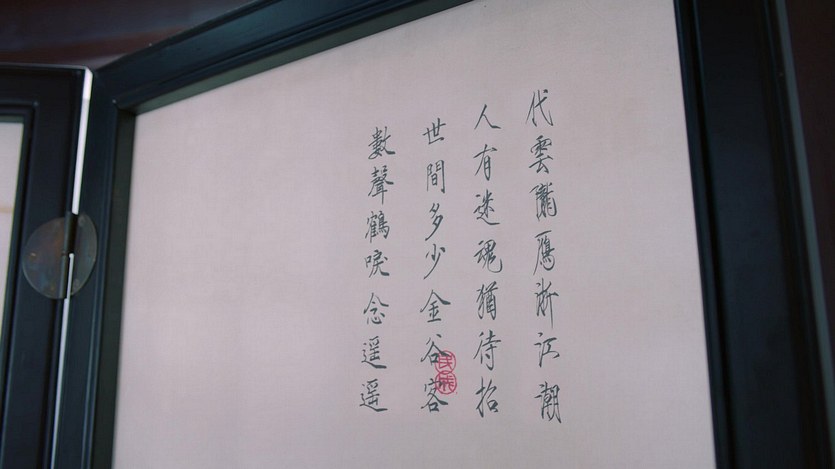 代雲隴雁浙江潮
人有迷魂猶待招
世間多少金谷客
數聲鶴唳念遥遥